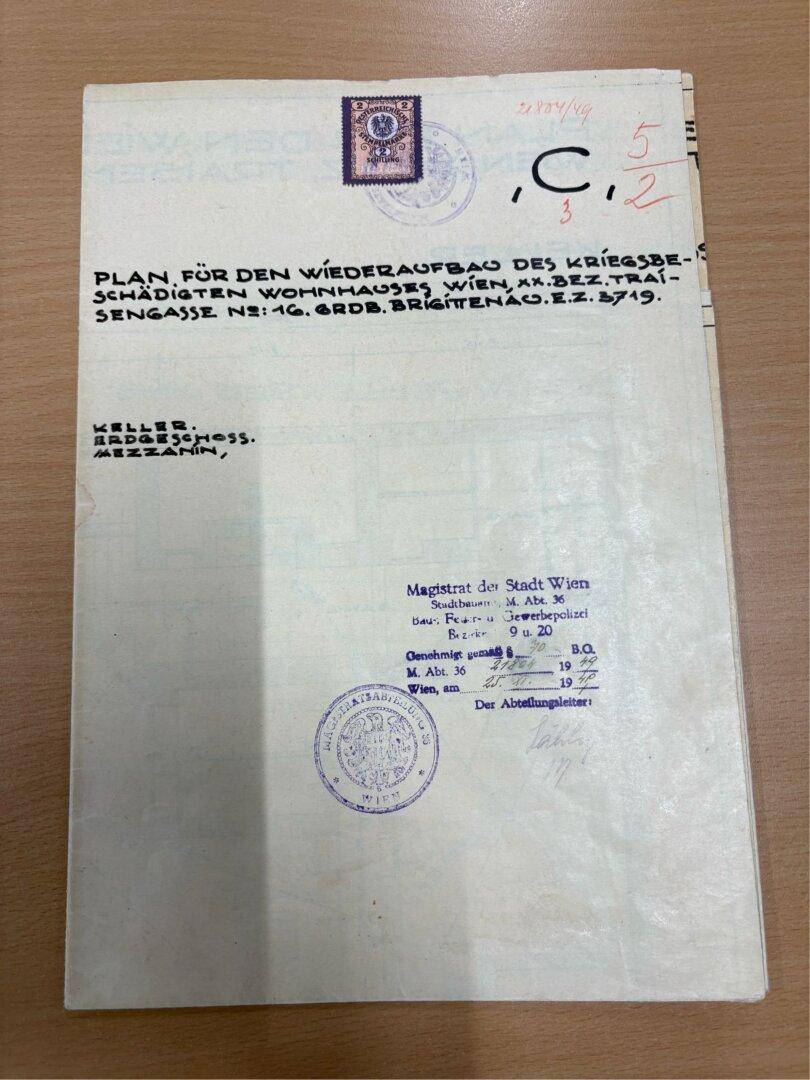 2 2
OESTERREICHISCHE
STEMPELMARKE
2
SCHILLING
21804/49
, C,
5/2
3
PLAN. FÜR DEN WIEDERAUFBAU DES KRIEGSBE-
SCHÄDIGTEN WOHNHAUSES WIEN, XX. BEZ. TRAI-
SENGASSE No: 16. GRDB. BRIGITTENAU. E.Z. 3719.
KELLER.
ERDGESCHOSS.
MEZZANIN,
Magistrat der Stadt Wien
Stadtbauamt, M. Abt. 36
Bau-, Feuer- u. Gewerbepolizei
Bezirke 9 u. 20
Genehmigt gemäß § 70 B.O.
M. Abt. 36 21804 1949
Wien, am 25. 11. 1949
Der Abteilungsleiter:
MAGISTRATSABTEILUNG 36
* WIEN *